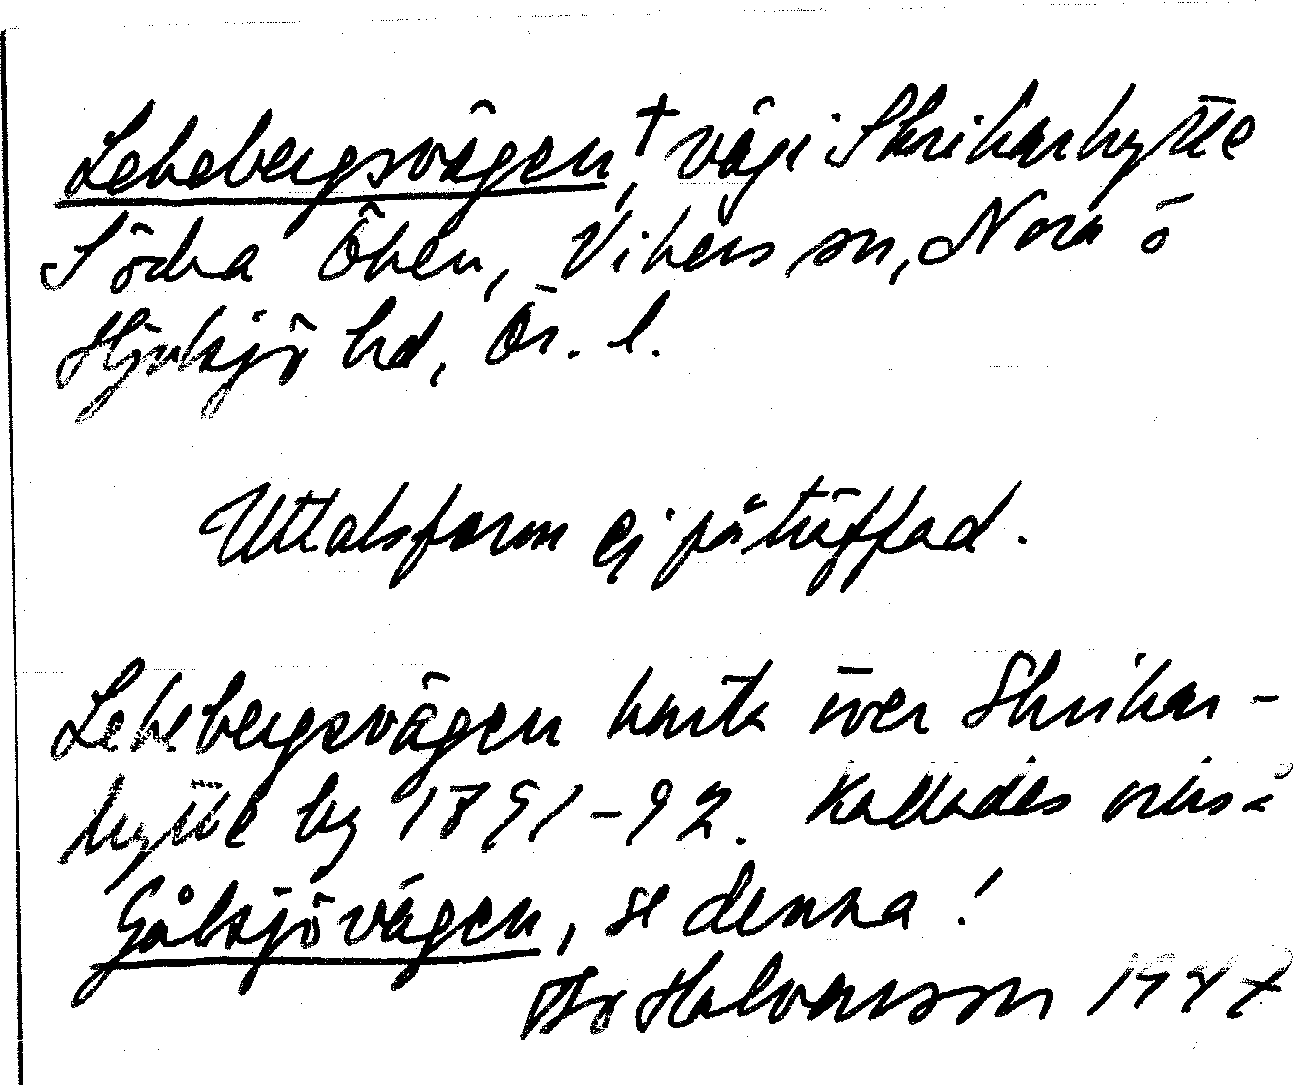 Lekebergsvägen†, väg i Skrikarhytte
Södra Öken, Vikers sn, Nora o
Hjulsjö hd, Ör. l.
Uttalsform ej påträffad.
Lekebergsvägen karta över Skrikar-
hytte by 1891-92. Kallades också
Gålsjövägen, se denna!
Halvarsson 1947